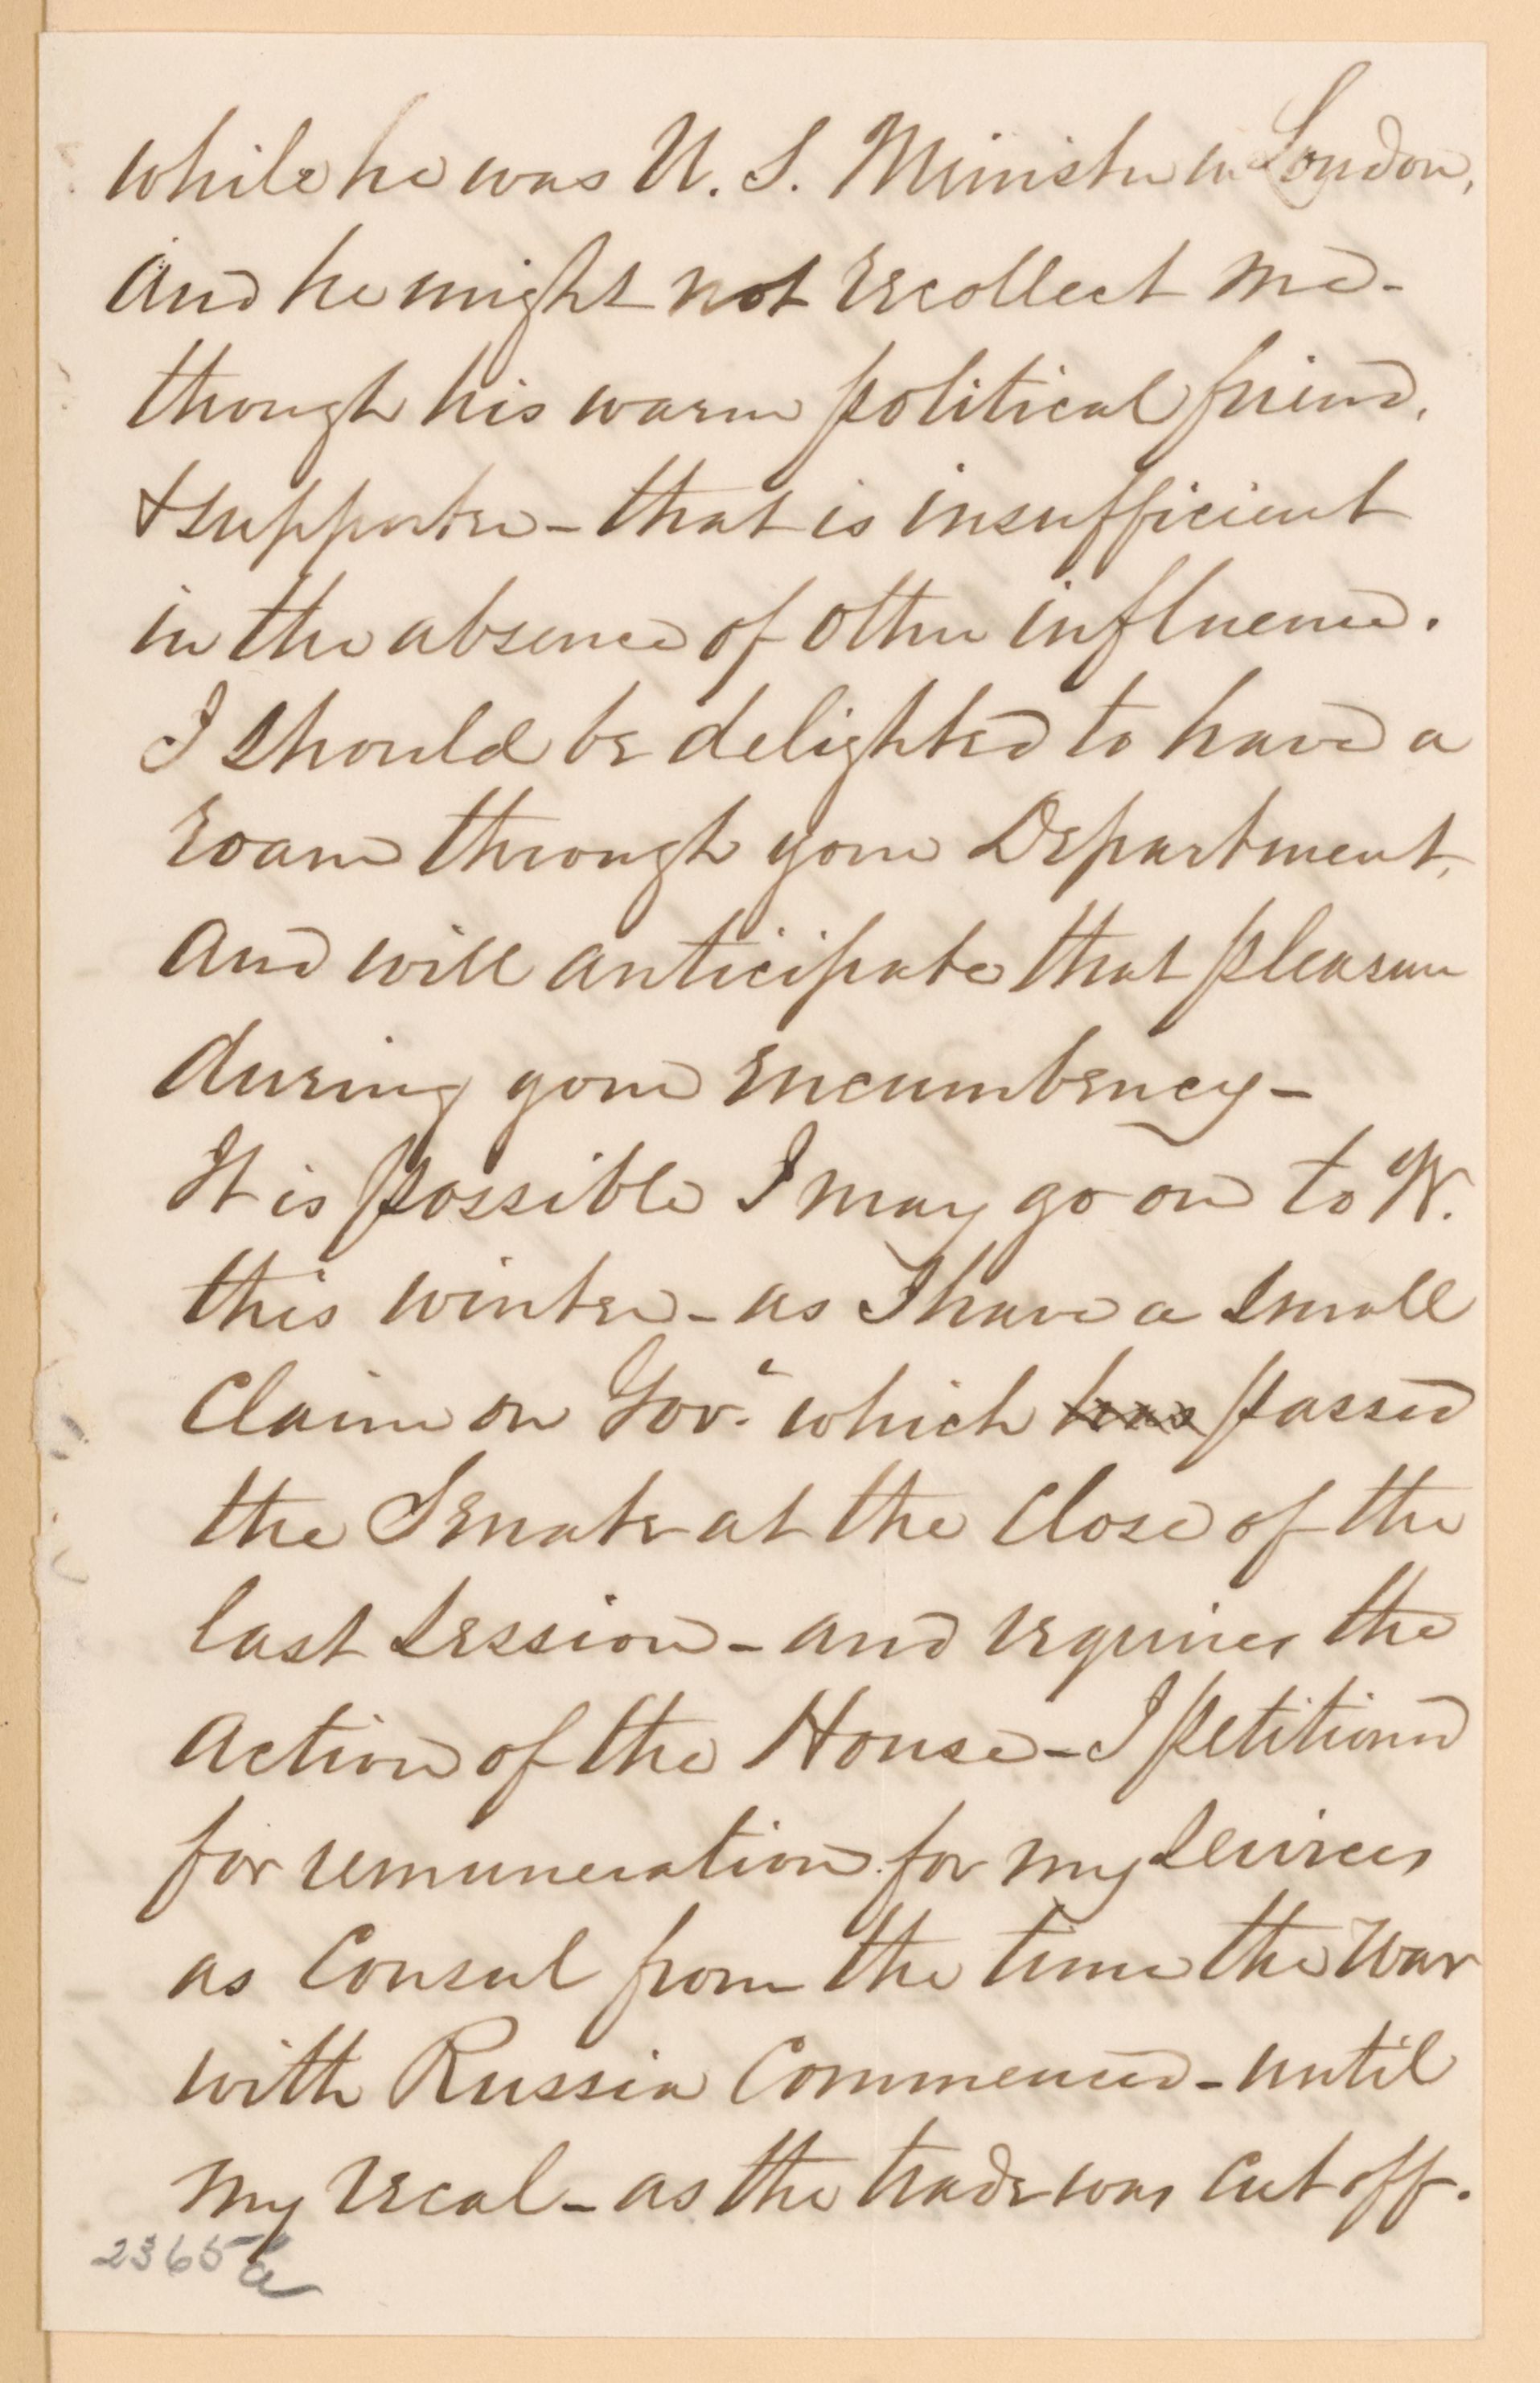 while he was U. S. Minister in London,
and he might not recollect me -
though his warm political friend,
& supporter - that is insufficient
in the absence of other influence.
I should be delighted to have a
roam through your Department,
and will anticipate that pleasure
during your encumbency -
It is possible I may go on to W.
this winter - as I have a small
claim on Gov.t which has passed
the Senate at the close of the
last session - and requires the
action of the House - I petitioned
for remuneration for my services
as Consul from the time the war
with Russia commenced - until
my recal - as the trade was cut off.
2365a